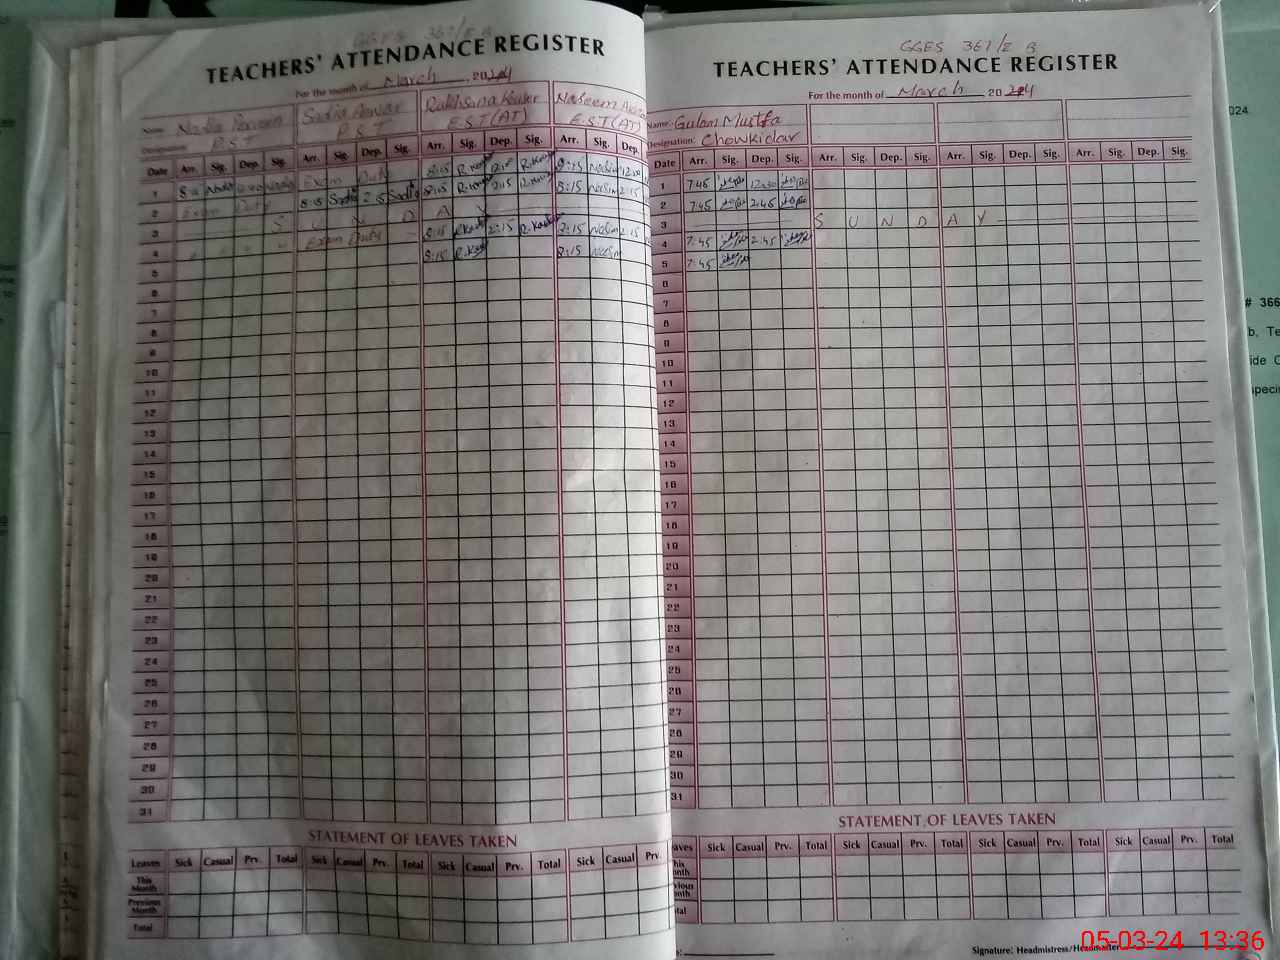 GGES 361/E B
TEACHERS' ATTENDANCE REGISTER
For the month of March, 2024
Name Nadia Parveen Sadia Anwar Rukhsana Kauser Naseem
Designation P.S.T P.S.T E.S.T(AT) E.S.T(AT)
Date Arr. Sig. Dep. Sig. Arr. Sig. Dep. Sig. Arr. Sig. Dep. Sig. Arr. Sig. Dep.
1 Nadia Exam Duty 8:15 8:15 12:00
2 Exam Duty 8:15 Sadia 2:15 Sadia 8:15 2:15 8:15 Nasim 2:15
3 S U N D A Y
4 " " " Exam Duty 8:15 2:15 R.Kauser 8:15 Nasim 2:15
5 8:15 8:15 Nasim
6
7
8
9
10
11
12
13
14
15
16
17
18
19
20
21
22
23
24
25
26
27
28
29
30
31
STATEMENT OF LEAVES TAKEN
Leaves Sick Casual Prv. Total Sick Casual Prv. Total Sick Casual Prv. Total Sick Casual Prv.
This Month
Previous Month
Total
GGES 361/E B
TEACHERS' ATTENDANCE REGISTER
For the month of March 2024
Name: Gulam Mustfa
Designation: Chowkidar
Date Arr. Sig. Dep. Sig. Arr. Sig. Dep. Sig. Arr. Sig. Dep. Sig. Arr. Sig. Dep. Sig.
1 7:45 12:30
2 7:45 2:45
3 S U N D A Y
4 7:45 2:45
5 7:45
6
7
8
9
10
11
12
13
14
15
16
17
18
19
20
21
22
23
24
25
26
27
28
29
30
31
STATEMENT OF LEAVES TAKEN
eaves Sick Casual Prv. Total Sick Casual Prv. Total Sick Casual Prv. Total Sick Casual Prv. Total
his
nth
vious
nth
tal
Signature: Headmistress/Headmaster
024.
# 366
b, Te
ide C
pecin
05-03-24 13:36